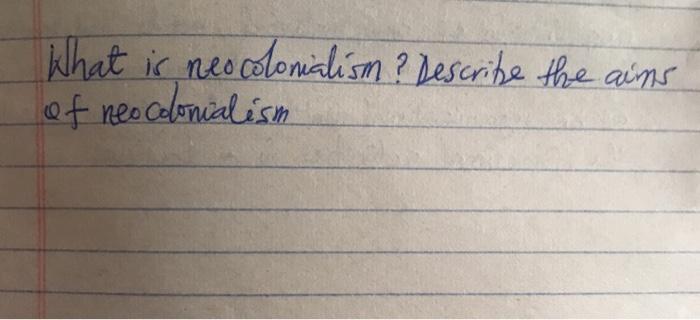 What is neocolonialism? Describe the aims
of neocolonialism